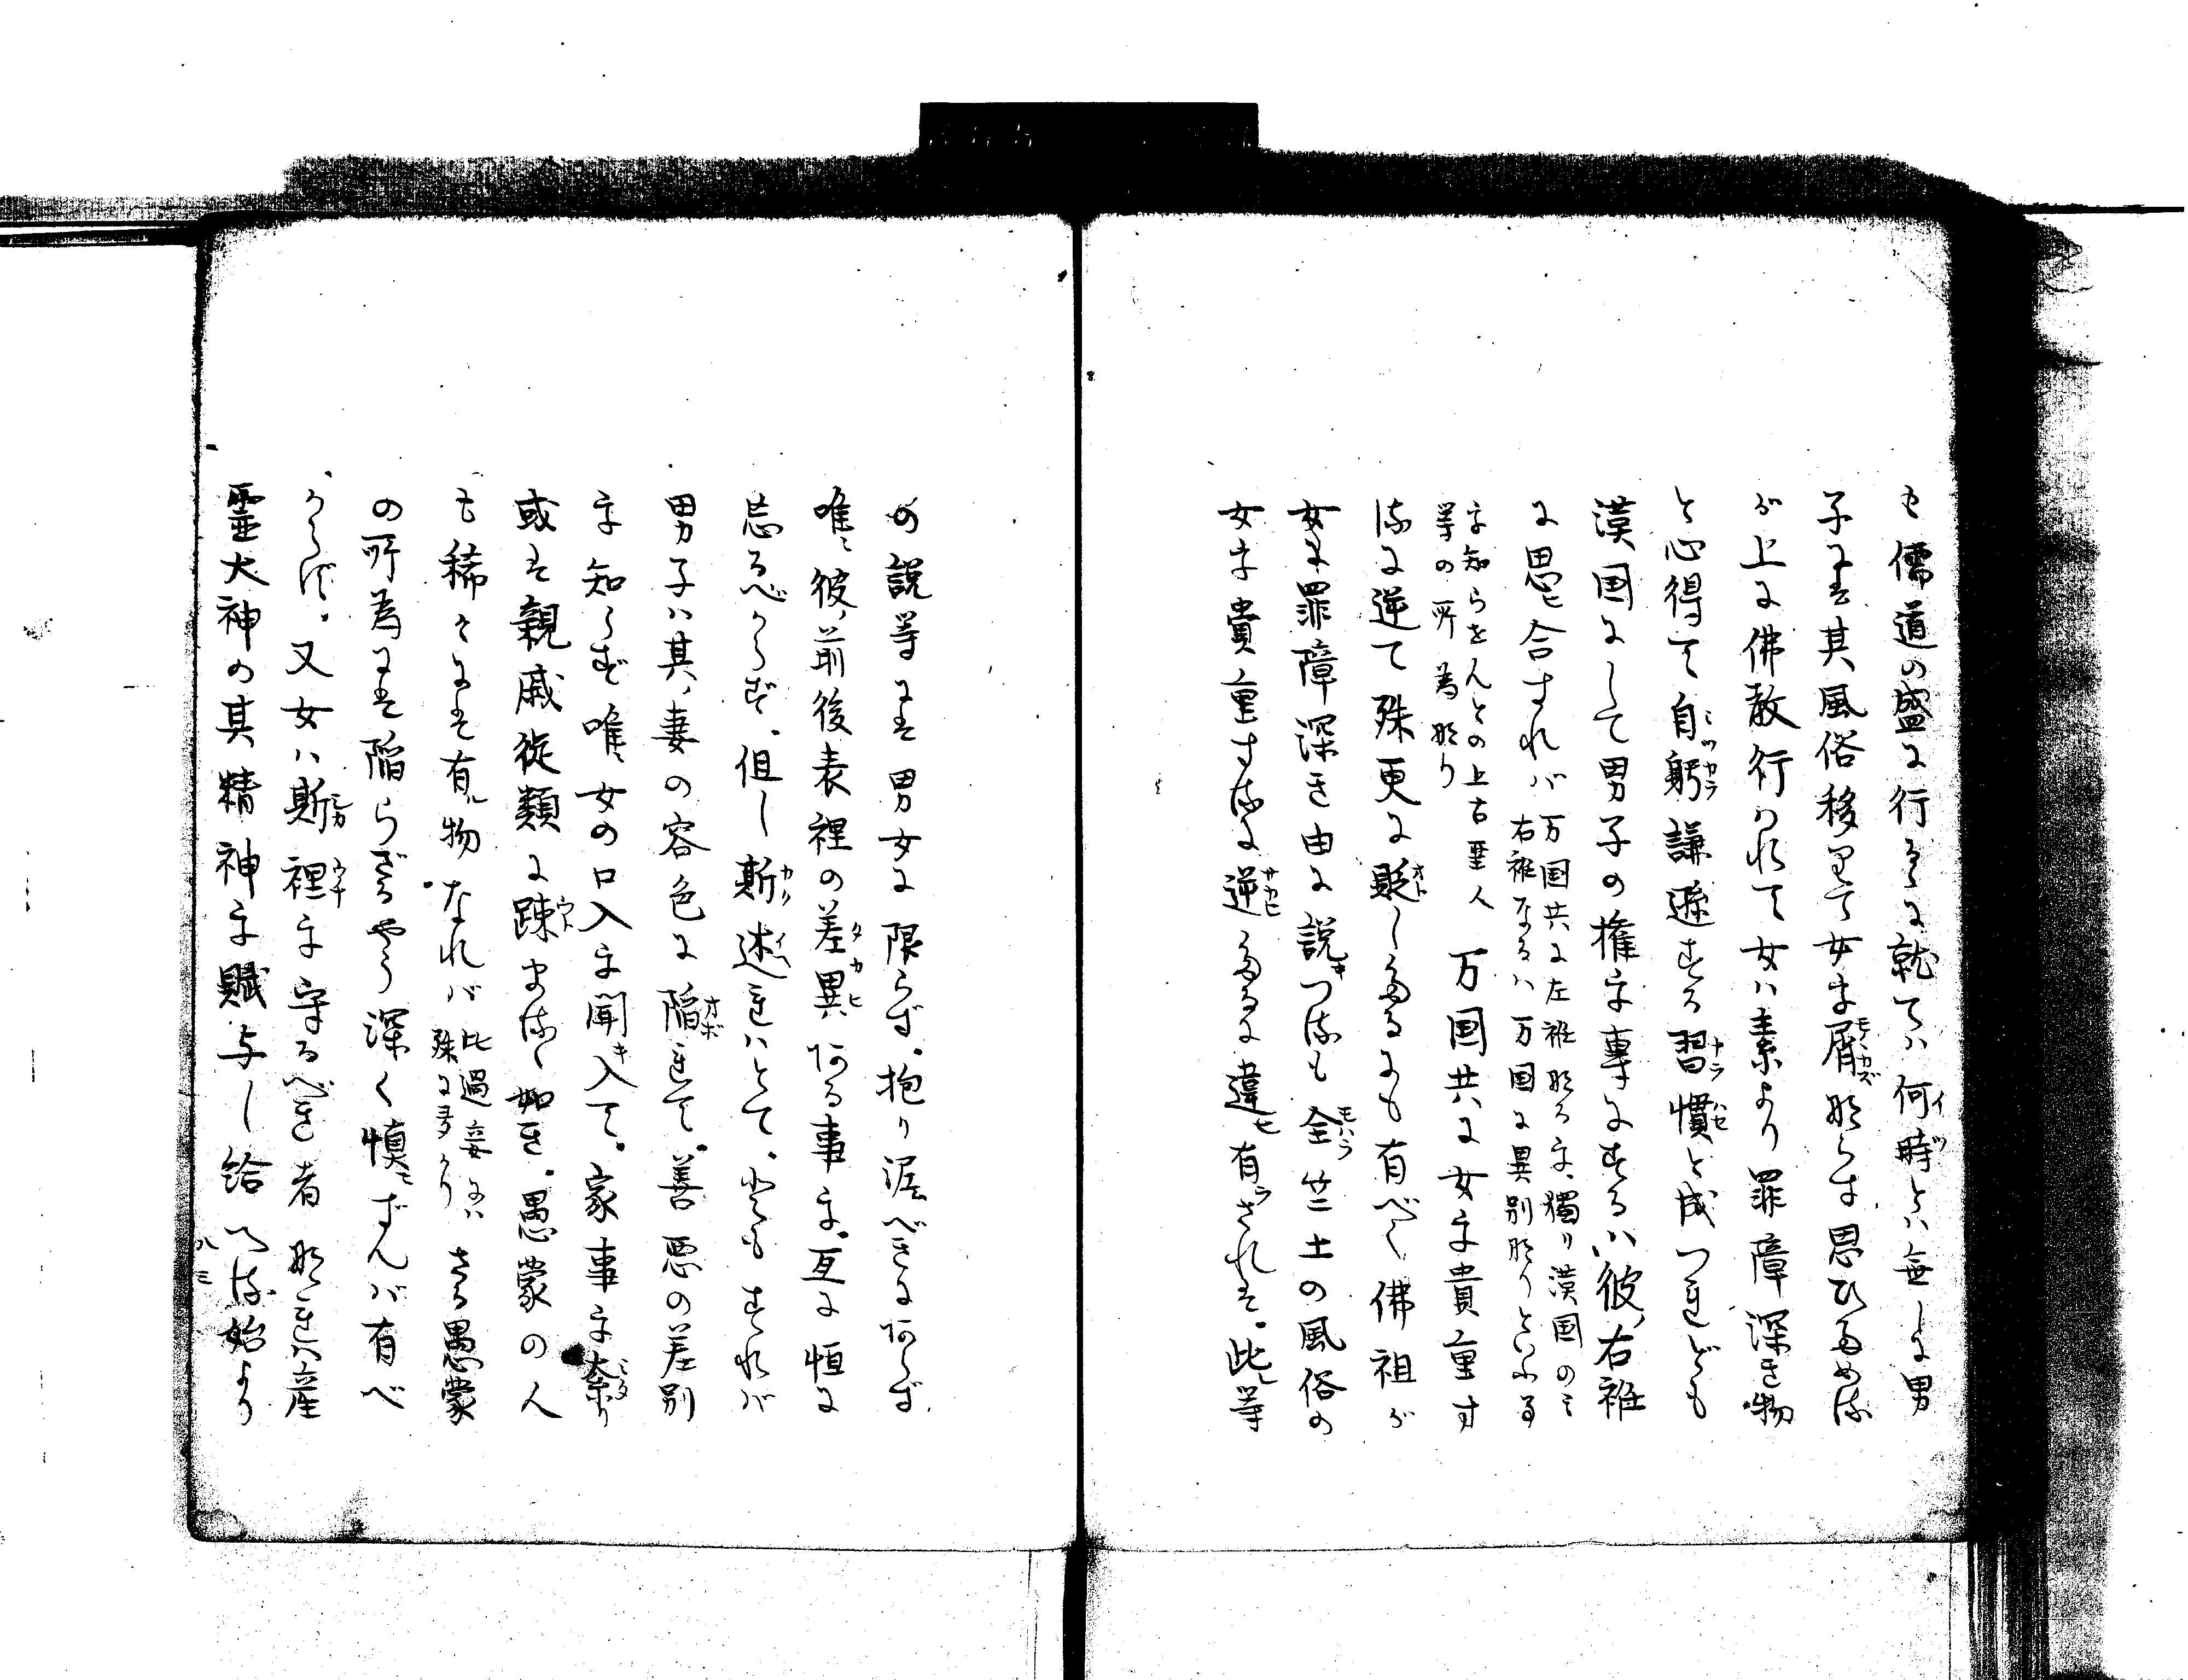 も儒道の盛に行るに就ては何時とは無しに男
子には其風俗移りて女を屑ならず思ひためる
が上に佛教行われて女は素より罪障深き物
と心得て自躬謙遜する習慣と成つれども
漢国にして男子の権を専にするは彼右袵
に思ひ合すれば
万国共に左袵なるを、獨り漢国のミ
右袵なるハ万国に異別なりといふ事
を知らせんとの上古聖人
等の所為なり
万国共に女を貴重す
るに逆て殊更に貶したるにも有べく佛祖が
女は罪障深き由に説つるも全竺土の風俗の
女を貴重するに逆たるに違有ざれば。此等
の説等には男女に限らず。抱り泥べきに阿らず
唯彼前後表裡の差異阿る事を。互に恒に
忘るべからず。但し斯述ればとて。
男子ハ其妻の容色に陥れて。善悪の差別
を知らず唯女の口入を聞入て。家事を紊り
或は親戚從類に踈まるゝ如き。愚蒙の人
も稀々には有物なれば
比過妄には
殊に多かり
さる愚蒙
の所為には陥らざるやう深く慎ずんば有べ
からず。又女ハ斯裡を守るべき者なれば産
霊大神の其精神を賦与し給へる始より
八三